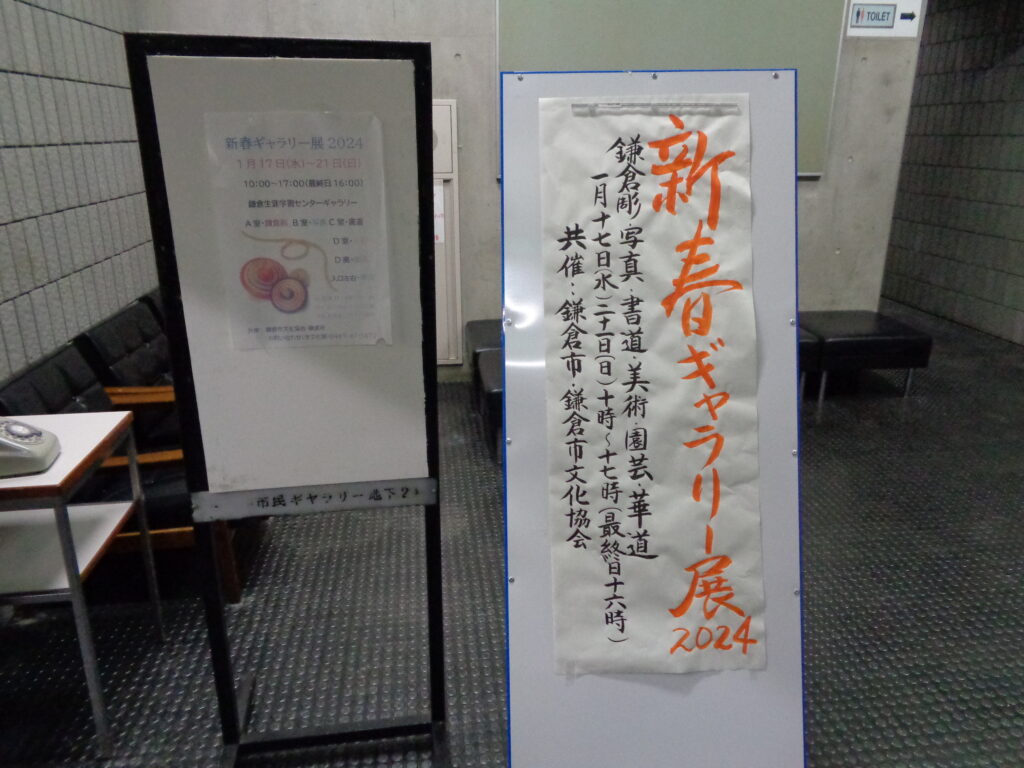 新春ギャラリー展 2024
1月17日(水)～21日(日)
10:00～17:00(最終日16:00)
鎌倉生涯学習センターギャラリー
A室・鎌倉彫 B室・写真 C室・書道
D室・
D裏・
入口左右・
市民ギャラリー地下2
新春ギャラリー展 2024
鎌倉彫・写真・書道・美術・園芸・華道
一月十七日(水)二十一日(日)十時～十七時(最終日十六時)
共催：鎌倉市・鎌倉市文化協会
TOILET